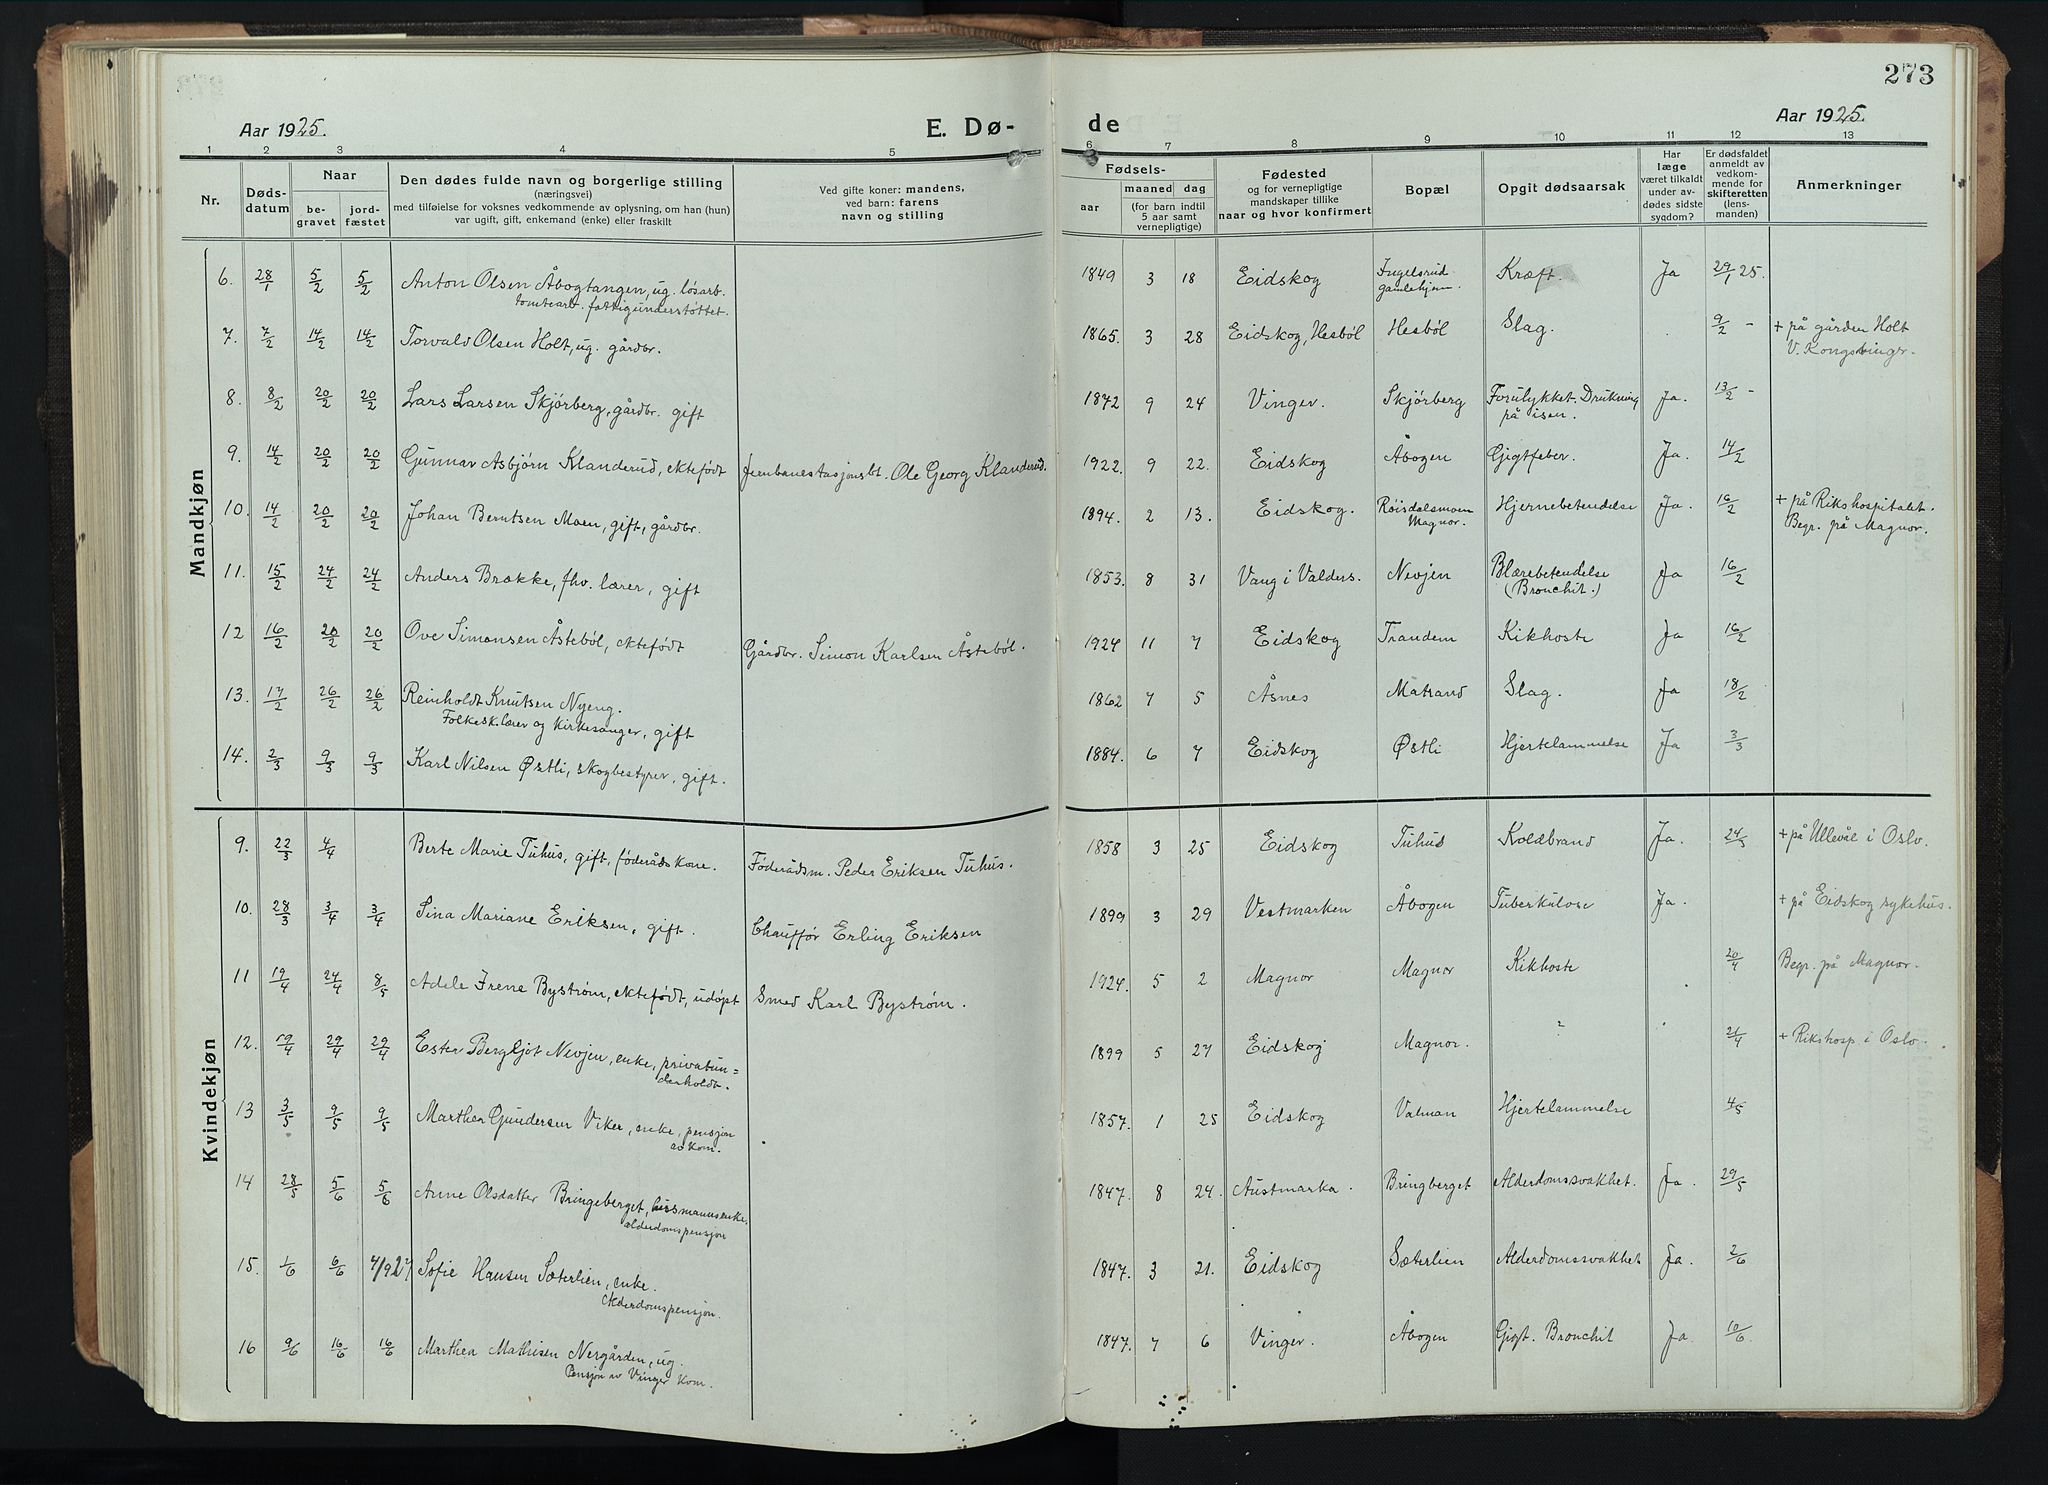 273
Aar 1925.
E. Dø-
de
Aar 1925.
1 2 3 4 5 6 7 8 9 10 11 12 13
Nr.
Døds-
datum
Naar
be-
gravet
jord-
fæstet
Den dødes fulde navn og borgerlige stilling
(næringsvei)
med tilføielse for voksnes vedkommende av oplysning, om han (hun)
var ugift, gift, enkemand (enke) eller fraskilt
Ved gifte koner: mandens,
ved barn: farens
navn og stilling
Fødsels-
aar
maaned dag
(for barn indtil
5 aar samt
vernepligtige)
Fødested
og for vernepligtige
mandskaper tillike
naar og hvor konfirmert
Bopæl
Opgit dødsaarsak
Har
læge
været tilkaldt
under av-
dødes sidste
sygdom?
Er dødsfaldet
anmeldt av
vedkom-
mende for
skifteretten
(lens-
manden)
Anmerkninger
Mandkjøn
6. 28/1 5/2 5/2 Anton Olsen Åbogtangen, ug. løsarb. 1849 3 18 Eidskog Ingelsrud Kræft. Ja 29/1 25.
tomtearb. fattigunderstøttet. gamlehjem.
7. 7/2 14/2 14/2 Torvald Olsen Holt, ug. gårdbr. 1865. 3 28 Eidskog, Hesbøl Hesbøl Slag. 9/2 - + på gården Holt
V. Kongsvinger.
8. 8/2 20/2 20/2 Lars Larsen Skjørberg, gårdbr. gift 1872 9 24 Vinger. Skjørberg Forulykket. Drukning Ja. 13/2 -
på isen.
9. 14/2 20/2 20/2 Gunnar Asbjørn Klanderud, ektefødt Jernbanestasjonsbt. Ole Georg Klanderud. 1922. 9 22. Eidskog Åbogen Gigtfeber. Ja. 14/2
10. 14/2 20/2 20/2 Johan Berntsen Moen, gift, gårdbr. 1894. 2 13. Eidskog. Røisdalsmoen Hjernebetendelse Ja. 16/2 + på Rikshospitalet.
Magnor. Begr. på Magnor.
11. 15/2 24/2 24/2 Anders Brække, fhv. lærer, gift 1853. 8 31 Vang i Valders. Nevjen Blærebetendelse Ja 16/2
(Bronchit.)
12 16/2 20/2 20/2 Ove Simonsen Åstebøl, ektefødt Gårdbr. Simon Karlsen Åstebøl. 1924 11 7 Eidskog Trandem Kikhoste Ja 16/2
13. 17/2 26/2 26/2 Reinholdt Knutsen Nyeng. 1862 7 5 Åsnes Matrand Slag. Ja 18/2
Folkesk.lærer og kirkesanger, gift
14. 2/3 9/3 9/3 Karl Nilsen Østli, skogbestyrer, gift. 1884. 6 7 Eidskog Østli Hjertelammelse Ja 3/3
Kvindekjøn
9. 22/3 4/4 Berte Marie Tuhus, gift, føderådskone. Føderådsm. Peder Eriksen Tuhus. 1858 3 25 Eidskog Tuhus Koldbrand Ja. 24/5 + på Ullevål i Oslo.
10. 28/3 3/4 3/4 Sina Mariane Eriksen, gift. Chauffør Erling Eriksen 1899 3 29 Vestmarken Åbogen Tuberkulose Ja. + på Eidskog sykehus.
11 19/4 24/4 8/5 Adele Irene Byström, ektefødt, udøpt Smed Karl Byström. 1924. 5 2 Magnor Magnor Kikhoste 20/4 Begr. på Magnor.
12. 19/4 29/4 29/4 Ester Bergljot Nevjen, enke, privatun= 1899 5 27 Eidskog Magnor. 21/4 + Rikshosp. i Oslo.
derholdt.
13 3/5 9/5 9/5 Marthea Gundersen Viker, enke, pensjon 1857. 1 25 Eidskog Valman Hjertelammelse 4/5
av kom.
14 28/5 5/6 5/6 Anne Olsdatter Bringeberget, husmannsenke. 1847. 8 24. Austmarka. Bringberget Alderdomssvakhet. Ja. 29/5
alderdomspensjon
15. 1/6 6/6 4/927 Sofie Hansen Sæterlien, enke. 1847. 3 21. Eidskog Sæterlien Alderdomssvakhet Ja. 2/6
Alderdomspensjon.
16 9/6 16/6 16/6 Marthea Mathisen Nergården, ug. 1847. 7 6 Vinger. Åbogen Gigt. Bronchit Ja. 10/6
Pensjon av Vinger kom.